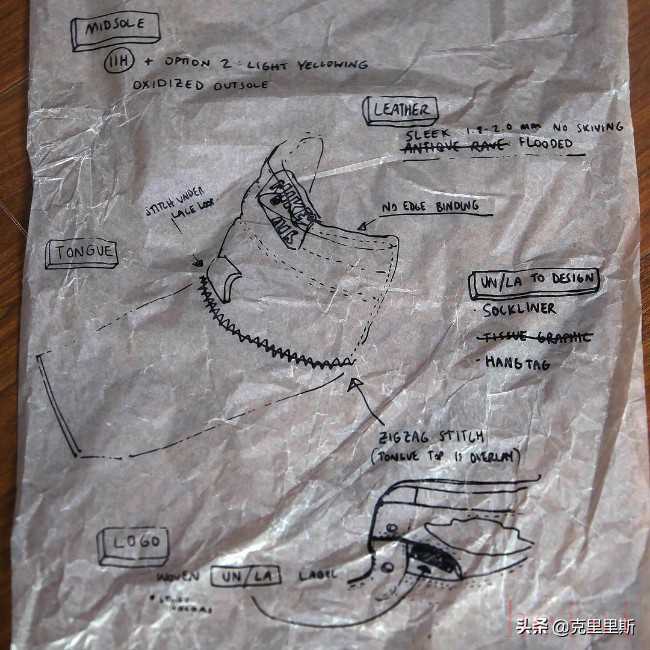 MIDSOLE
11H + OPTION 2: LIGHT YELLOWING
OXIDIZED OUTSOLE
LEATHER
SLEEK 1.8-2.0 mm NO SKIVING
ANTIQUE RAVE FLOODED
STITCH UNDER
LACE LOOP
NO EDGE BINDING
TONGUE
UN/LA TO DESIGN
· SOCKLINER
· TISSUE GRAPHIC
· HANGTAG
ZIGZAG STITCH
(TONGUE TOP IS OVERLAY)
LOGO
WOVEN UN/LA LABEL
头条 @克里里斯